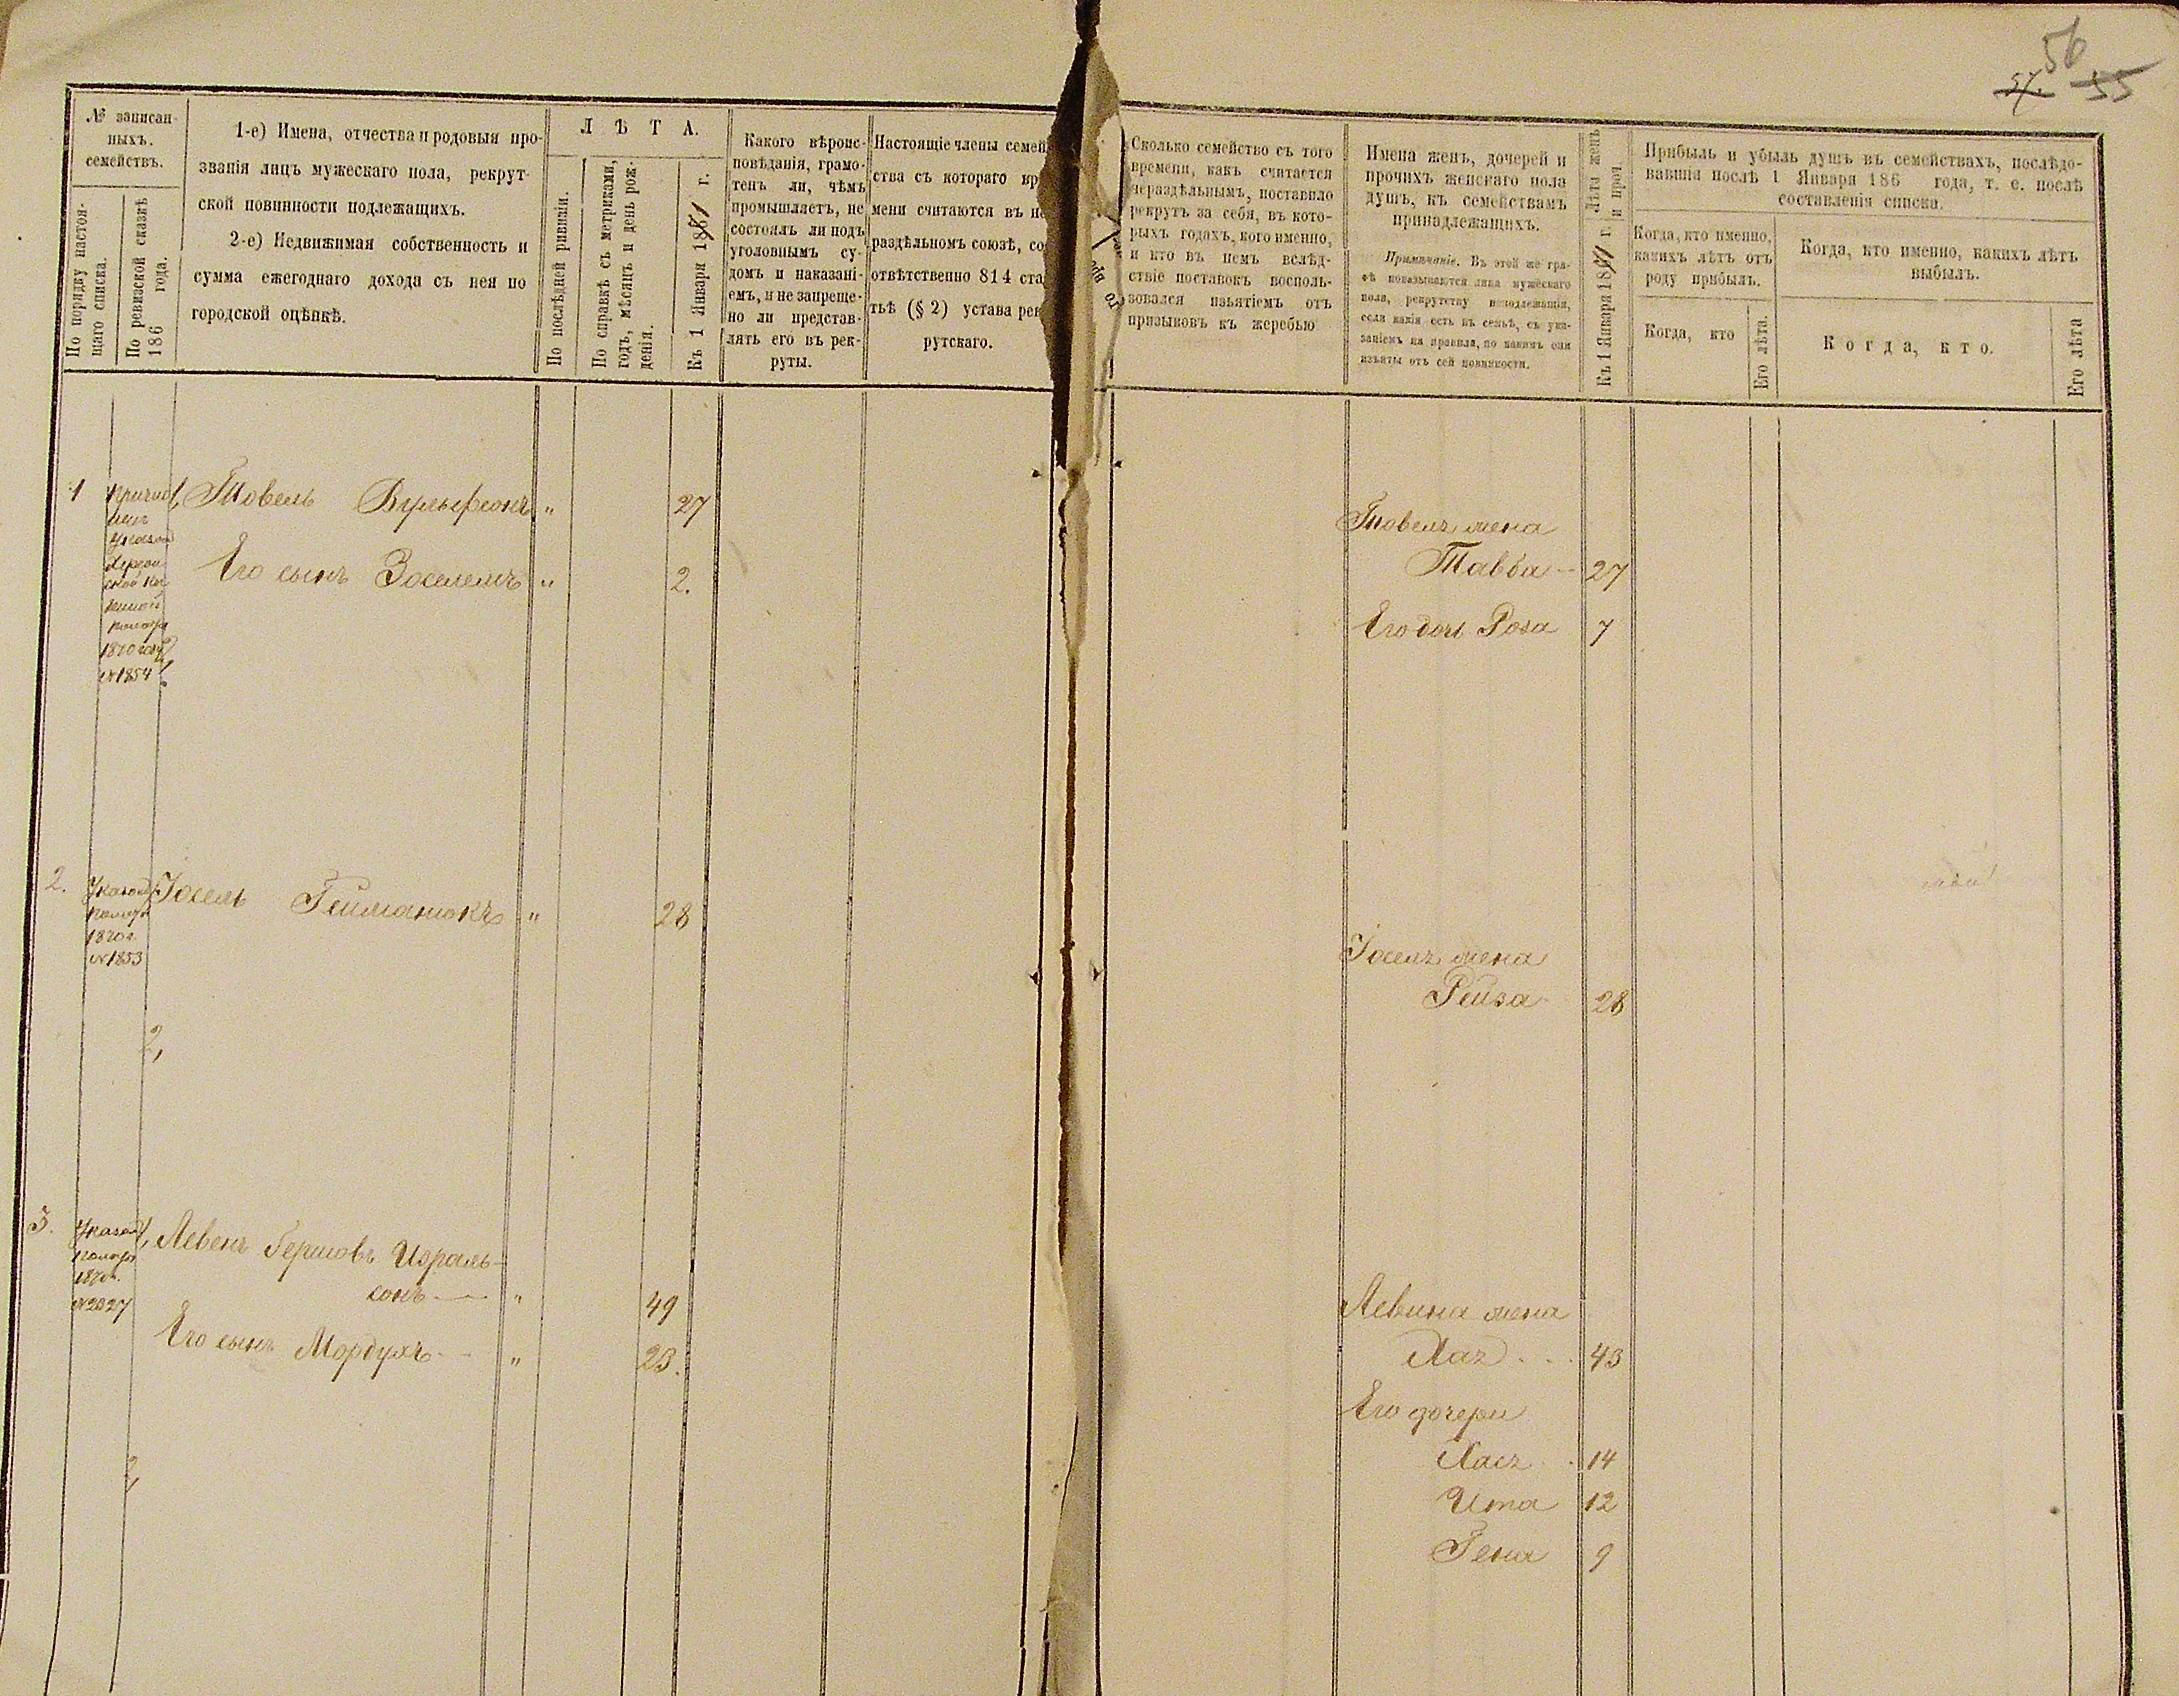 56
57. 55
№ записан-
ныхъ.
семействъ.
По порядку настоя-
щаго списка.
По ревизской сказкѣ
186 года.
1-е) Имена, отчества и родовыя про-
званія лицъ мужескаго пола, рекрут-
ской повинности подлежащихъ.
2-е) Недвижимая собственность и
сумма ежегоднаго дохода съ нея по
городской оцѣнкѣ.
ЛѢТА.
По послѣдней ривизіи.
По справкѣ съ метриками,
годъ, мѣсяцъ и день рож-
денія.
Къ 1 Января 1871 г.
Какого вѣроис-
повѣданія, грамо-
тенъ ли, чѣмъ
промышляетъ, не
состоялъ ли подъ
уголовнымъ су-
домъ и наказані-
емъ, и не запреще-
но ли представ-
лять его въ рек-
руты.
Настоящіе члены семей
ства съ котораго вре
мени считаются въ не
раздѣльномъ союзѣ, со
отвѣтственно 814 ста
тьѣ (§ 2) устава рек
рутскаго.
Сколько семейство съ того
времени, какъ считается
нераздѣльнымъ, поставило
рекрутъ за себя, въ кото-
рыхъ годахъ, кого именно,
и кто въ немъ вслѣд-
ствіе поставокъ восполь-
зовался изъятіемъ отъ
призывовъ къ жеребью
Имена женъ, дочерей и
прочихъ женскаго пола
душъ, къ семействамъ
принадлежащихъ.
Примѣчаніе. Въ этой же гра-
фѣ показываются лица мужескаго
пола, рекрутству неподлежащія,
если какія есть въ семьѣ, съ ука-
заніемъ на правила, по какимъ они
изъяты отъ сей повинности.
Лѣта женъ
и проч.
Къ 1 Января 1871 г.
Прибыль и убыль душъ въ семействахъ, послѣдо-
вавшія послѣ 1 Января 186 года, т. е. послѣ
составленія списка.
Когда, кто именно,
какихъ лѣтъ отъ
роду прибылъ.
Когда, кто именно, какихъ лѣтъ
выбылъ.
Когда, кто
Его лѣта.
Когда, кто.
Его лѣта
1 Товель Вульфсонъ " 27
Указой
1870 году
№1854
Его сынъ Зоселемъ " 2.
Товелъ жена
Тавба 27
Его дочь Роза 7
2. Указой Іосель Гейманюкъ " 28
1870 г.
№1853
Іоселъ жена
Рейза 28
2,
3. Указой Левенъ Гершовъ Израль-
сонъ " 49
1870 г.
№2027
Его сынъ Мордухъ " 23.
Левина жена
Хая 43
Его дочери
Хася 14
Ита 12
Гена 9
2,